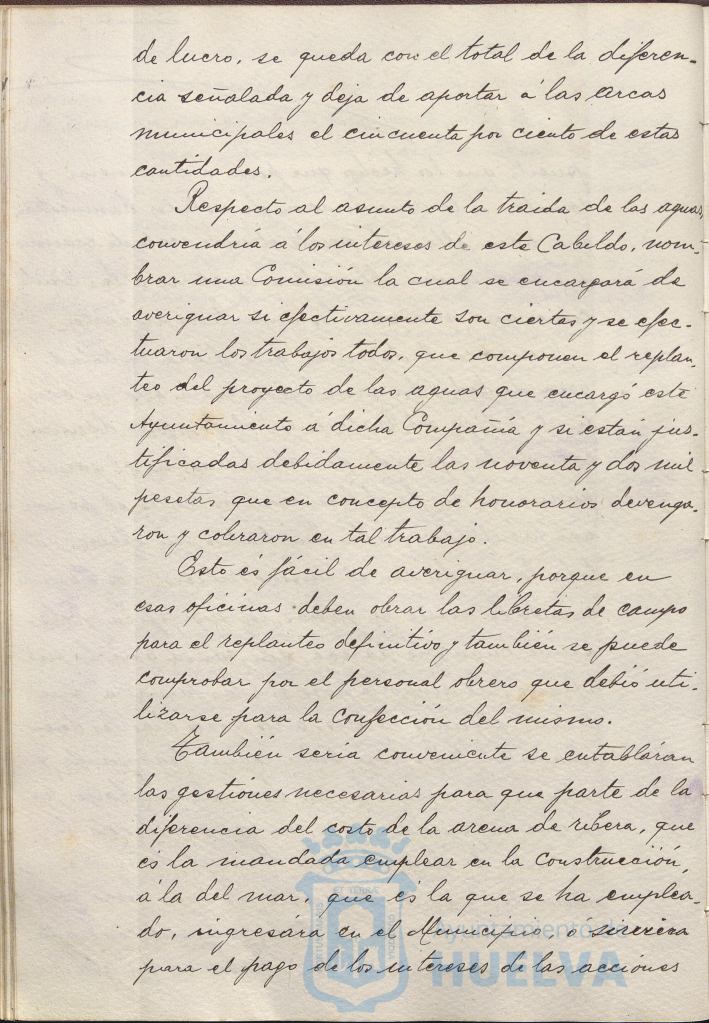 de lucro, se queda con el total de la diferen-
cia señalada y deja de aportar á las arcas
municipales el cincuenta por ciento de estas
cantidades.
Respecto al asunto de la traida de las aguas,
convendría á los intereses de este Cabildo, nom-
brar una Comisión la cual se encargará de
averiguar si efectivamente son ciertas y se efec-
tuaron los trabajos todos, que componen el replan-
teo del proyecto de las aguas que encargó este
Ayuntamiento á dicha Compañia y si están jus-
tificadas debidamente las noventa y dos mil
pesetas que en concepto de honorarios devenga-
ron y cobraron en tal trabajo.
Esto és fácil de averiguar, porque en
esas oficinas deben obrar las libretas de campo
para el replanteo definitivo y también se puede
comprobar por el personal obrero que debió uti-
lizarse para la confección del mismo.
También sería conveniente se entabláran
las gestiónes necesarias para que parte de la
diferencia del costo de la arena de ribera, que
és la mandada emplear en la Construcción,
á la del mar, que és la que se ha emplea-
do, ingresára en el Municipio, ó sirviera
para el pago de los intereses de las acciones
Ayuntamiento de
HUELVA